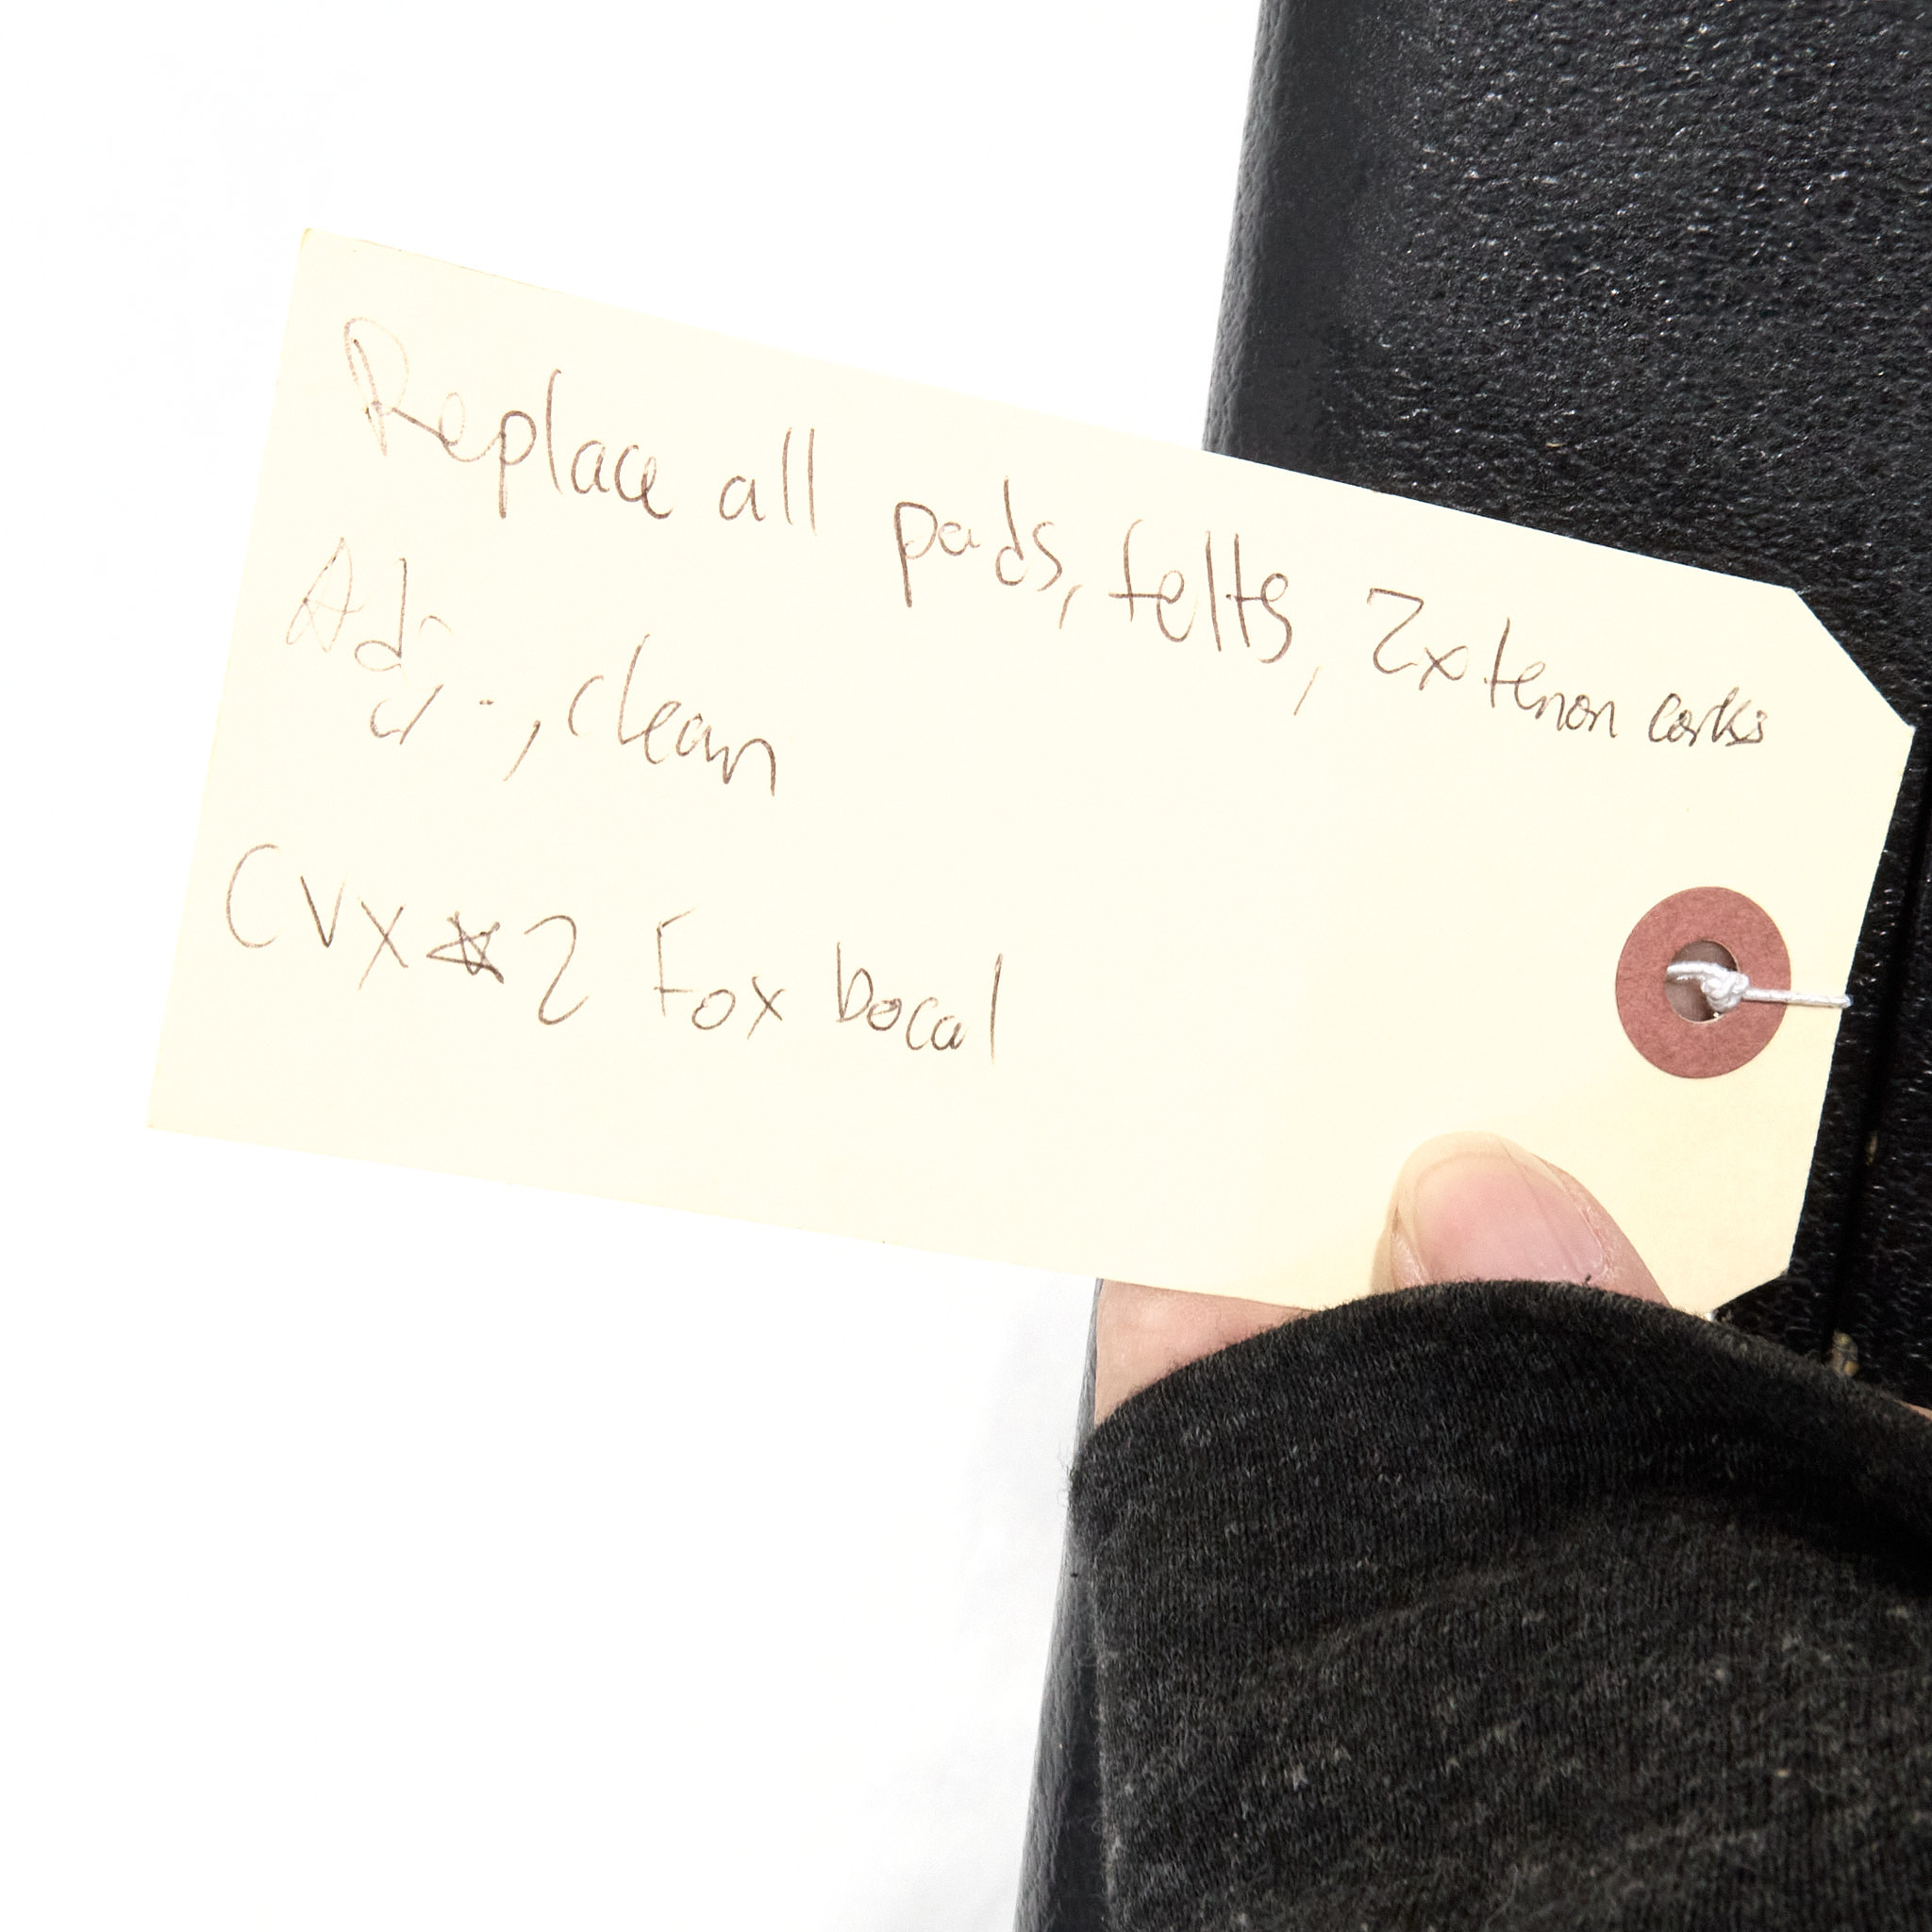 Replace all pads, felts, 2x tenon corks
Adj., clean
CVX #2 Fox bocal